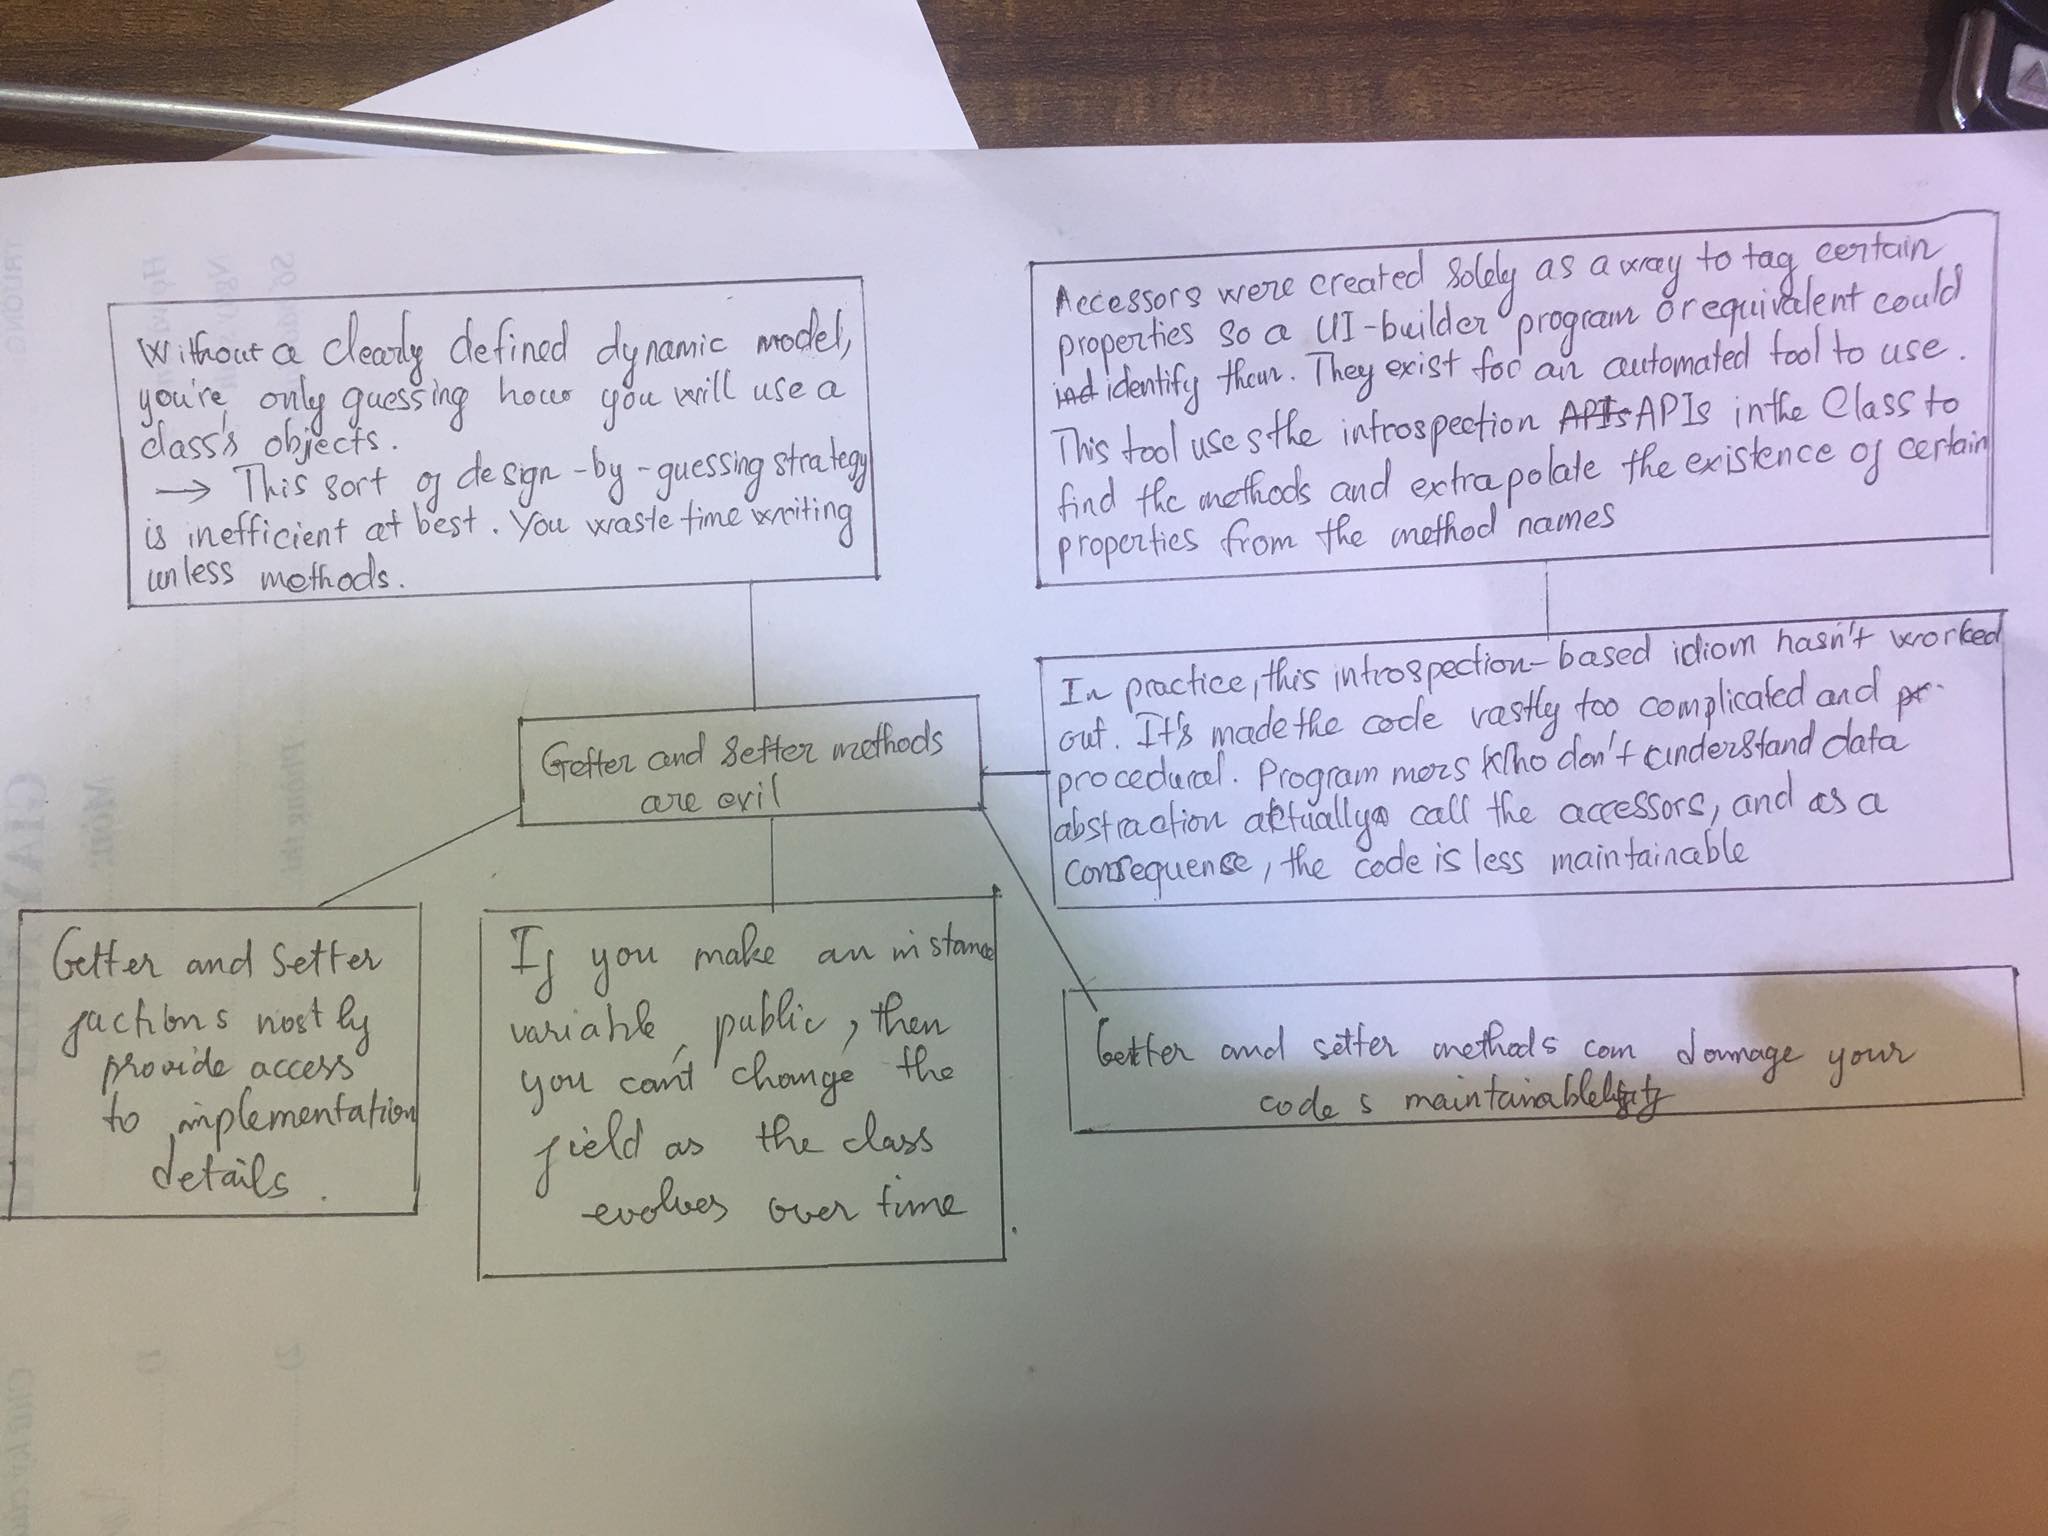 Without a clearly defined dynamic model,
you're only guessing how you will use a
class's objects.
→ This sort of design-by-guessing strategy
is inefficient at best. You waste time writing
unless methods.
Accessors were created solely as a way to tag certain
properties so a UI-builder program or equivalent could
identify them. They exist for an automated tool to use.
This tool uses the introspection APIs APIs in the Class to
find the methods and extrapolate the existence of certain
properties from the method names
In practice, this introspection-based idiom hasn't worked
out. It's made the code vastly too complicated and
procedural. Programmers Who don't understand data
abstraction actually call the accessors, and as a
consequense, the code is less maintainable
Getter and Setter methods
are evil
Getter and Setter
fuctions mostly
provide access
to implementation
details.
If you make an instance
variable public, then
you can't change the
field as the class
evolves over time
Getter and setter methods can damage your
code s